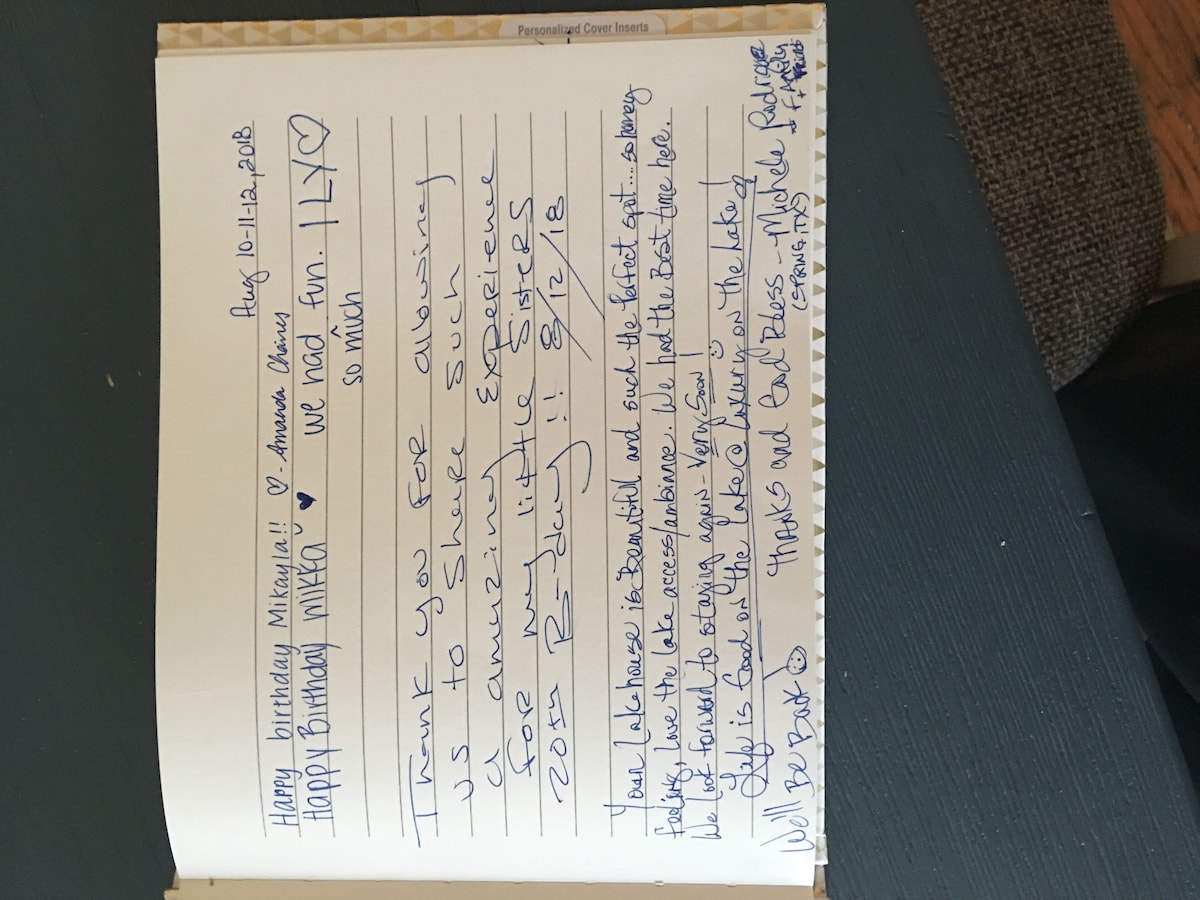 Personalized Cover Inserts
Aug 10-11-12, 2018
Happy birthday Mikayla!! ♡ - Amanda Chaires
Happy Birthday Mikka ♥ we had fun. I LY♡
so much
Thank you for allowing
us to Share Such
a amazing experience
for my little SisteRS
20th B-day!! 8/12/18
Your Lakehouse is Beautiful and such the perfect spot.... so homey
feeling, love the lake access/ambiance. We had the Best time here.
We look forward to staying again - Very Soon!
Life is Good on the Lake @ Luxury on the Lake!
Thanks and God Bless - Michele Rodriguez
& Family
+ Friends
(SPRING, TX)
We'll Be Back